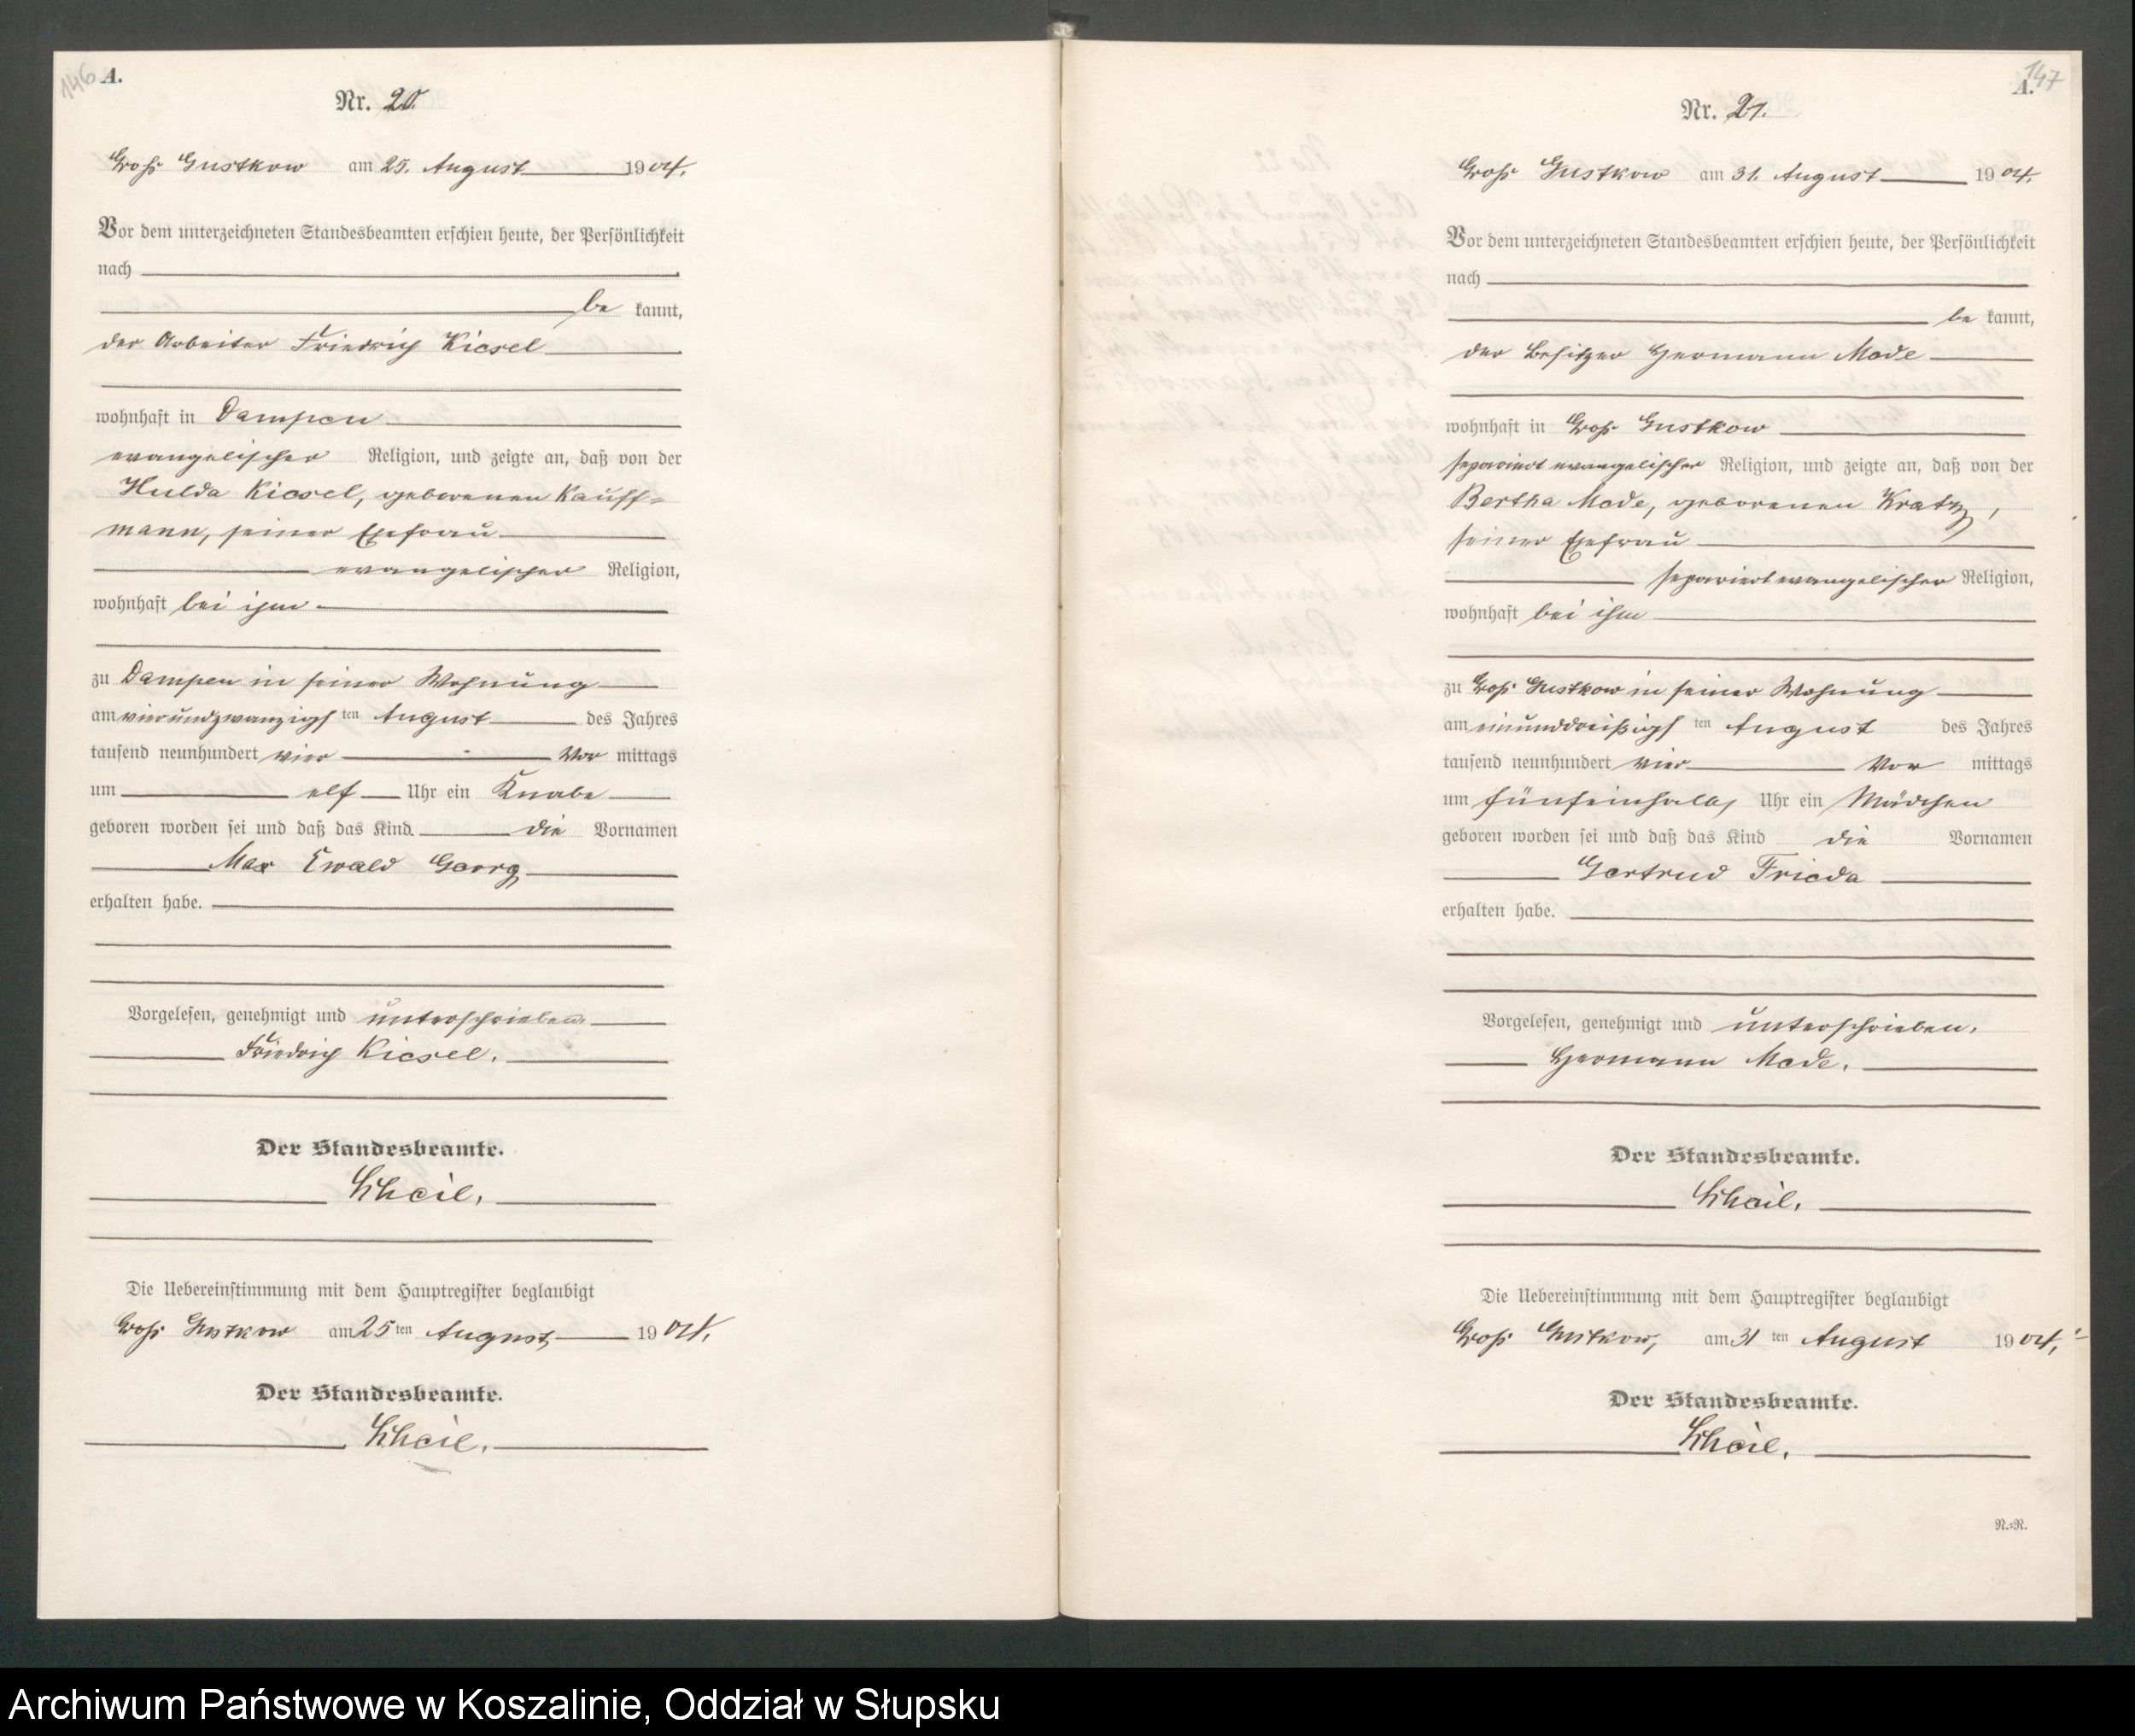 146 A.
Nr. 20.
Groß Gustkow am 25. August 1904.
Vor dem unterzeichneten Standesbeamten erschien heute, der Persönlichkeit
nach
be kannt,
der Arbeiter Friedrich Kiesel
wohnhaft in Dampen
evangelischer Religion, und zeigte an, daß von der
Hulda Kiesel, geborenen Kauff=
mann, seiner Ehefrau
evangelischer Religion,
wohnhaft bei ihm
zu Dampen in seiner Wohnung
am vierundzwanzigsten August des Jahres
tausend neunhundert vier Vor mittags
um elf Uhr ein Knabe
geboren worden sei und daß das Kind die Vornamen
Max Ewald Georg
erhalten habe.
Vorgelesen, genehmigt und unterschrieben.
Friedrich Kiesel.
Der Standesbeamte.
Scheil.
Die Uebereinstimmung mit dem Hauptregister beglaubigt
Groß Gustkow am 25ten August 1904.
Der Standesbeamte.
Scheil.
147
A.
Nr. 21.
Groß Gustkow am 31. August 1904.
Vor dem unterzeichneten Standesbeamten erschien heute, der Persönlichkeit
nach
be kannt,
der Besitzer Hermann Mode
wohnhaft in Groß Gustkow
separiert evangelischer Religion, und zeigte an, daß von der
Bertha Mode, geborenen Kratz,
seiner Ehefrau
separiert evangelischer Religion,
wohnhaft bei ihm
zu Groß Gustkow in seiner Wohnung
am einunddreißigsten August des Jahres
tausend neunhundert vier Vor mittags
um fünfeinhalb Uhr ein Mädchen
geboren worden sei und daß das Kind die Vornamen
Gertrud Frieda
erhalten habe.
Vorgelesen, genehmigt und unterschrieben.
Hermann Mode.
Der Standesbeamte.
Scheil.
Die Uebereinstimmung mit dem Hauptregister beglaubigt
Groß Gustkow, am 31 ten August 1904.
Der Standesbeamte.
Scheil.
R.=R.
Archiwum Państwowe w Koszalinie, Oddział w Słupsku